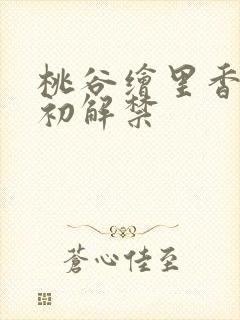 桃谷繪里香
初解禁
蒼心佳至